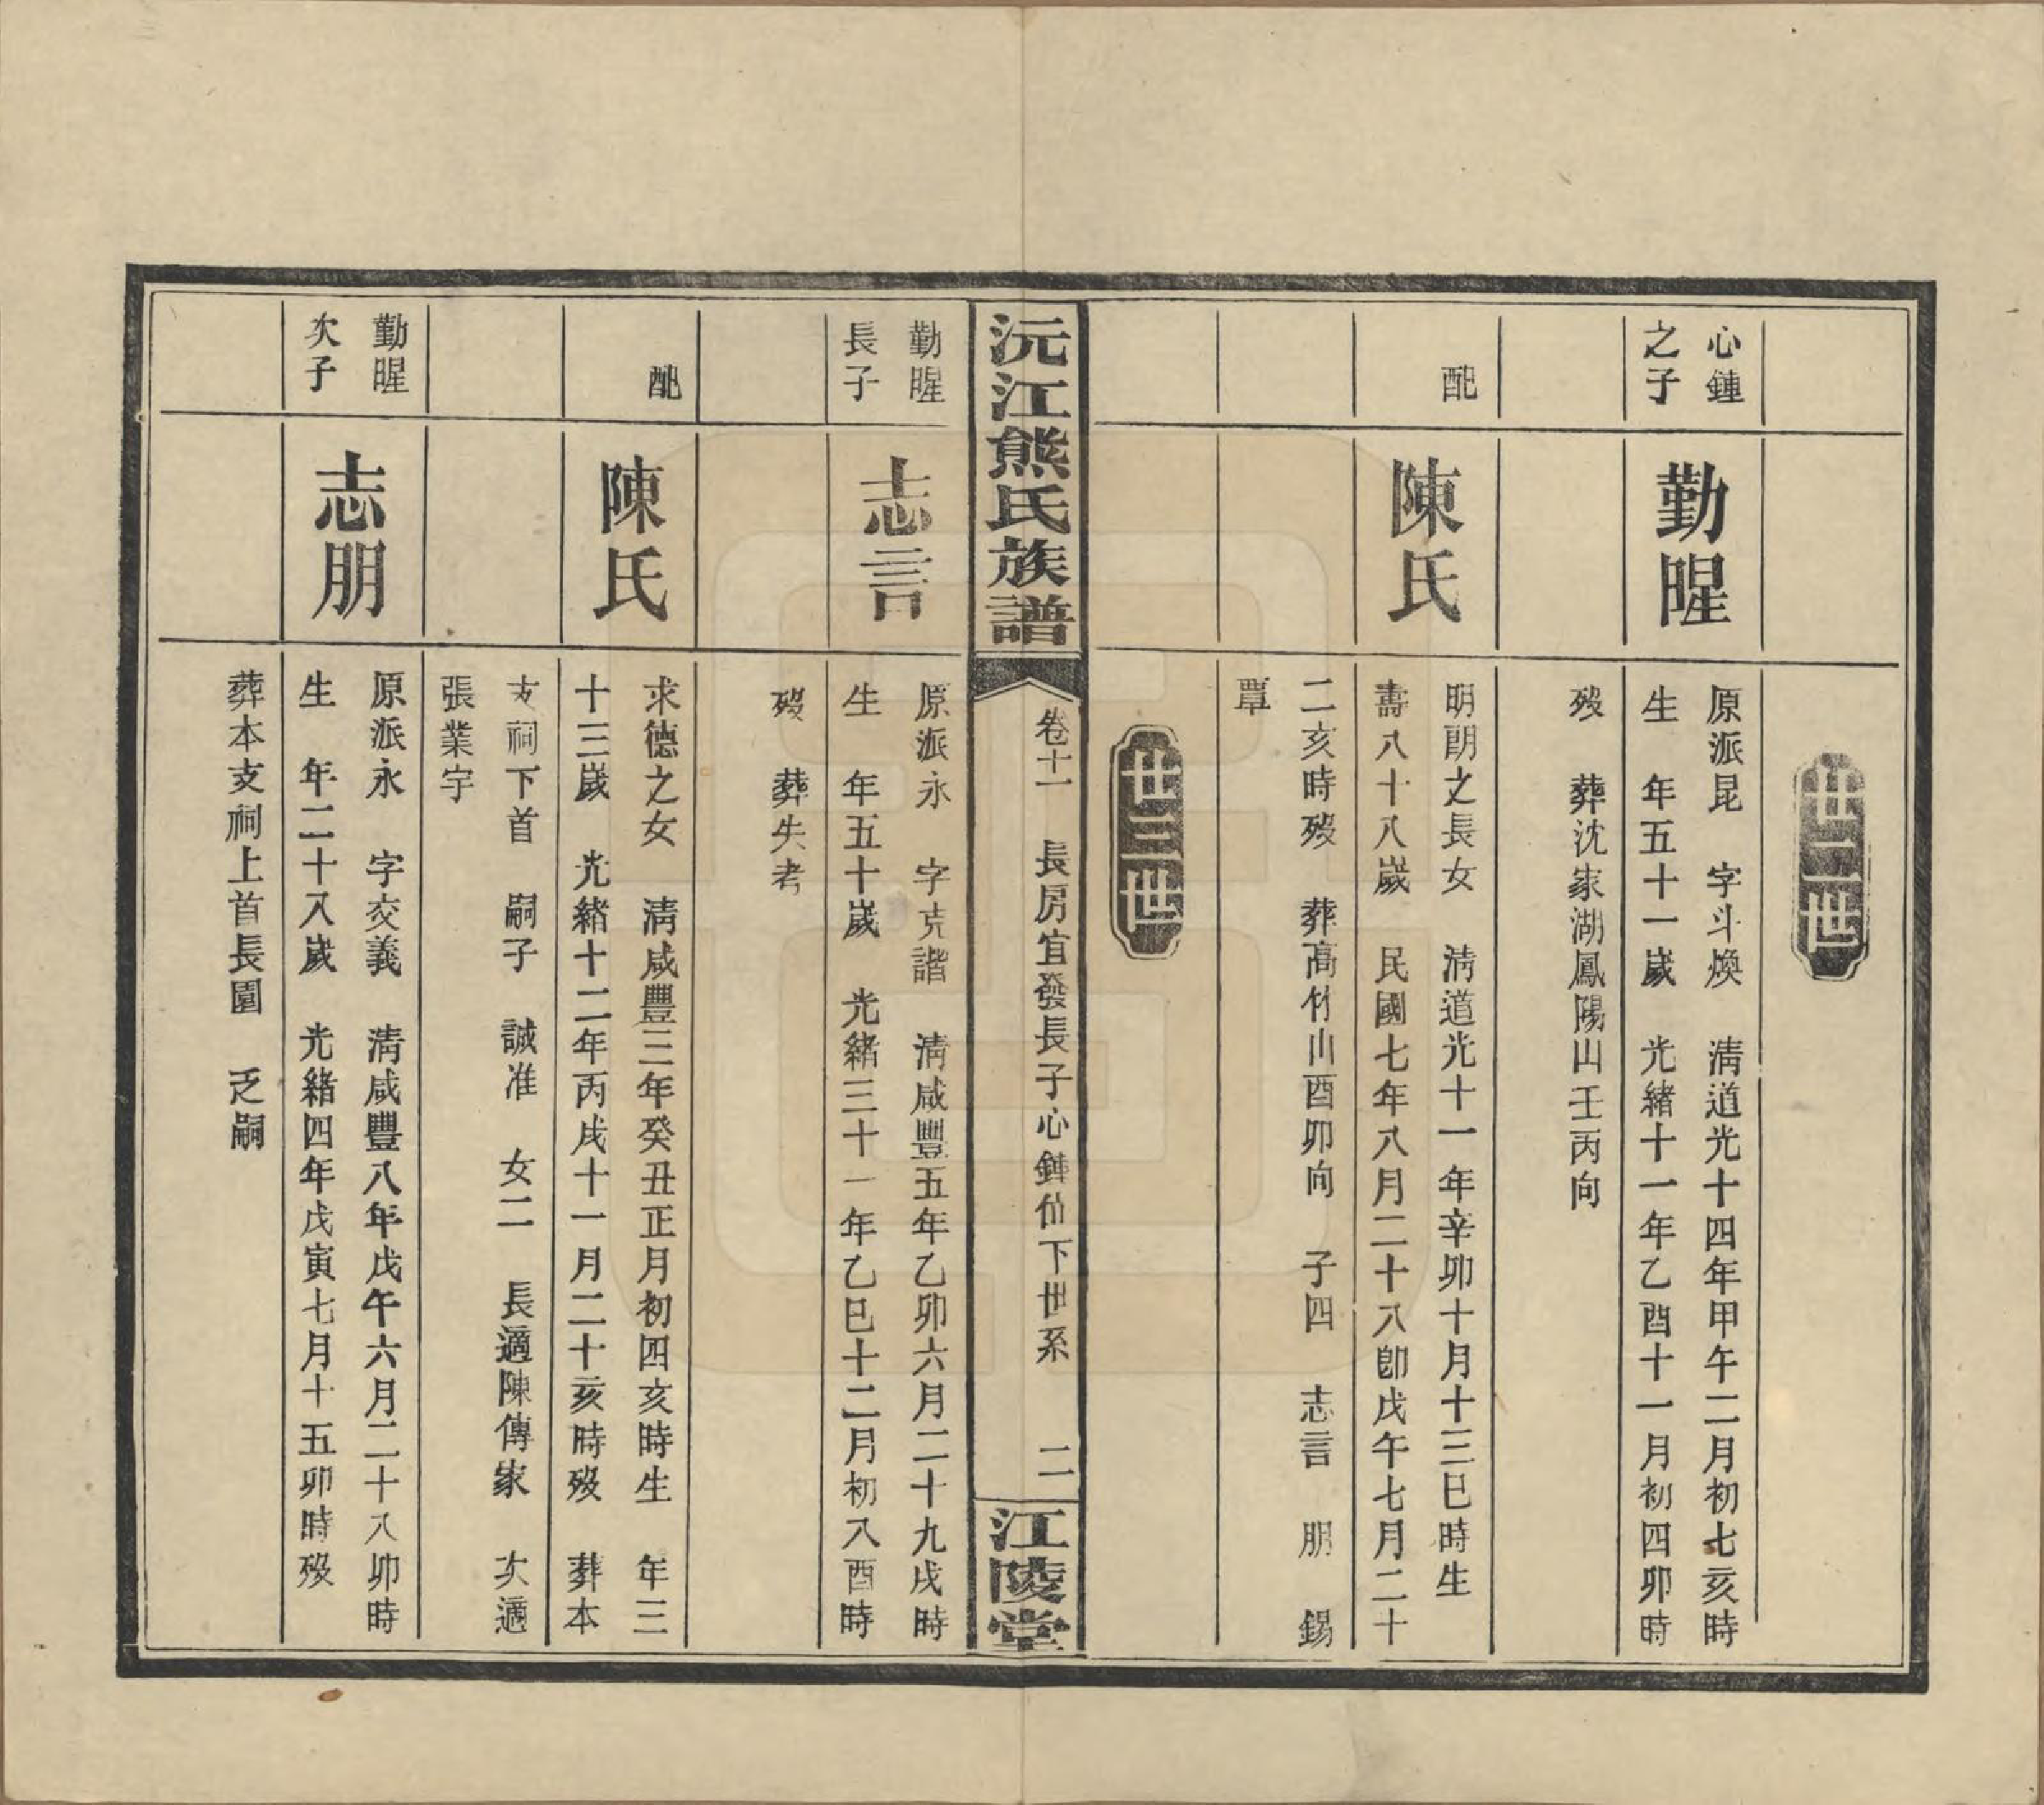 世二世
心鍾
之子
勤暒
原派昆　字斗煥　淸道光十四年甲午二月初七亥時
生　年五十一歲　光緒十一年乙酉十一月初四卯時
殁　葬沈家湖鳳陽山壬丙向
配
陳氏
明朗之長女　淸道光十一年辛卯十月十三巳時生
壽八十八歲　民國七年八月二十八卽戊午七月二十
二亥時殁　葬高竹山酉卯向　子四　志言　朋　錫
覃
世三世
沅江熊氏族譜
卷十一　長房宜發長子心鍾仙下世系　二
江陵堂
勤暒
長子
志言
原派永　字克諧　淸咸豐五年乙卯六月二十九戌時
生　年五十歲　光緒三十一年乙巳十二月初八酉時
殁　葬失考
配
陳氏
求德之女　淸咸豐三年癸丑正月初四亥時生　年三
十三歲　光緒十二年丙戌十一月二十亥時殁　葬本
支祠下首　嗣子　誠准　女二　長適陳傳家　次適
張業宇
勤暒
次子
志朋
原派永　字交義　淸咸豐八年戊午六月二十八卯時
生　年二十八歲　光緒四年戊寅七月十五卯時殁
葬本支祠上首長園　乏嗣